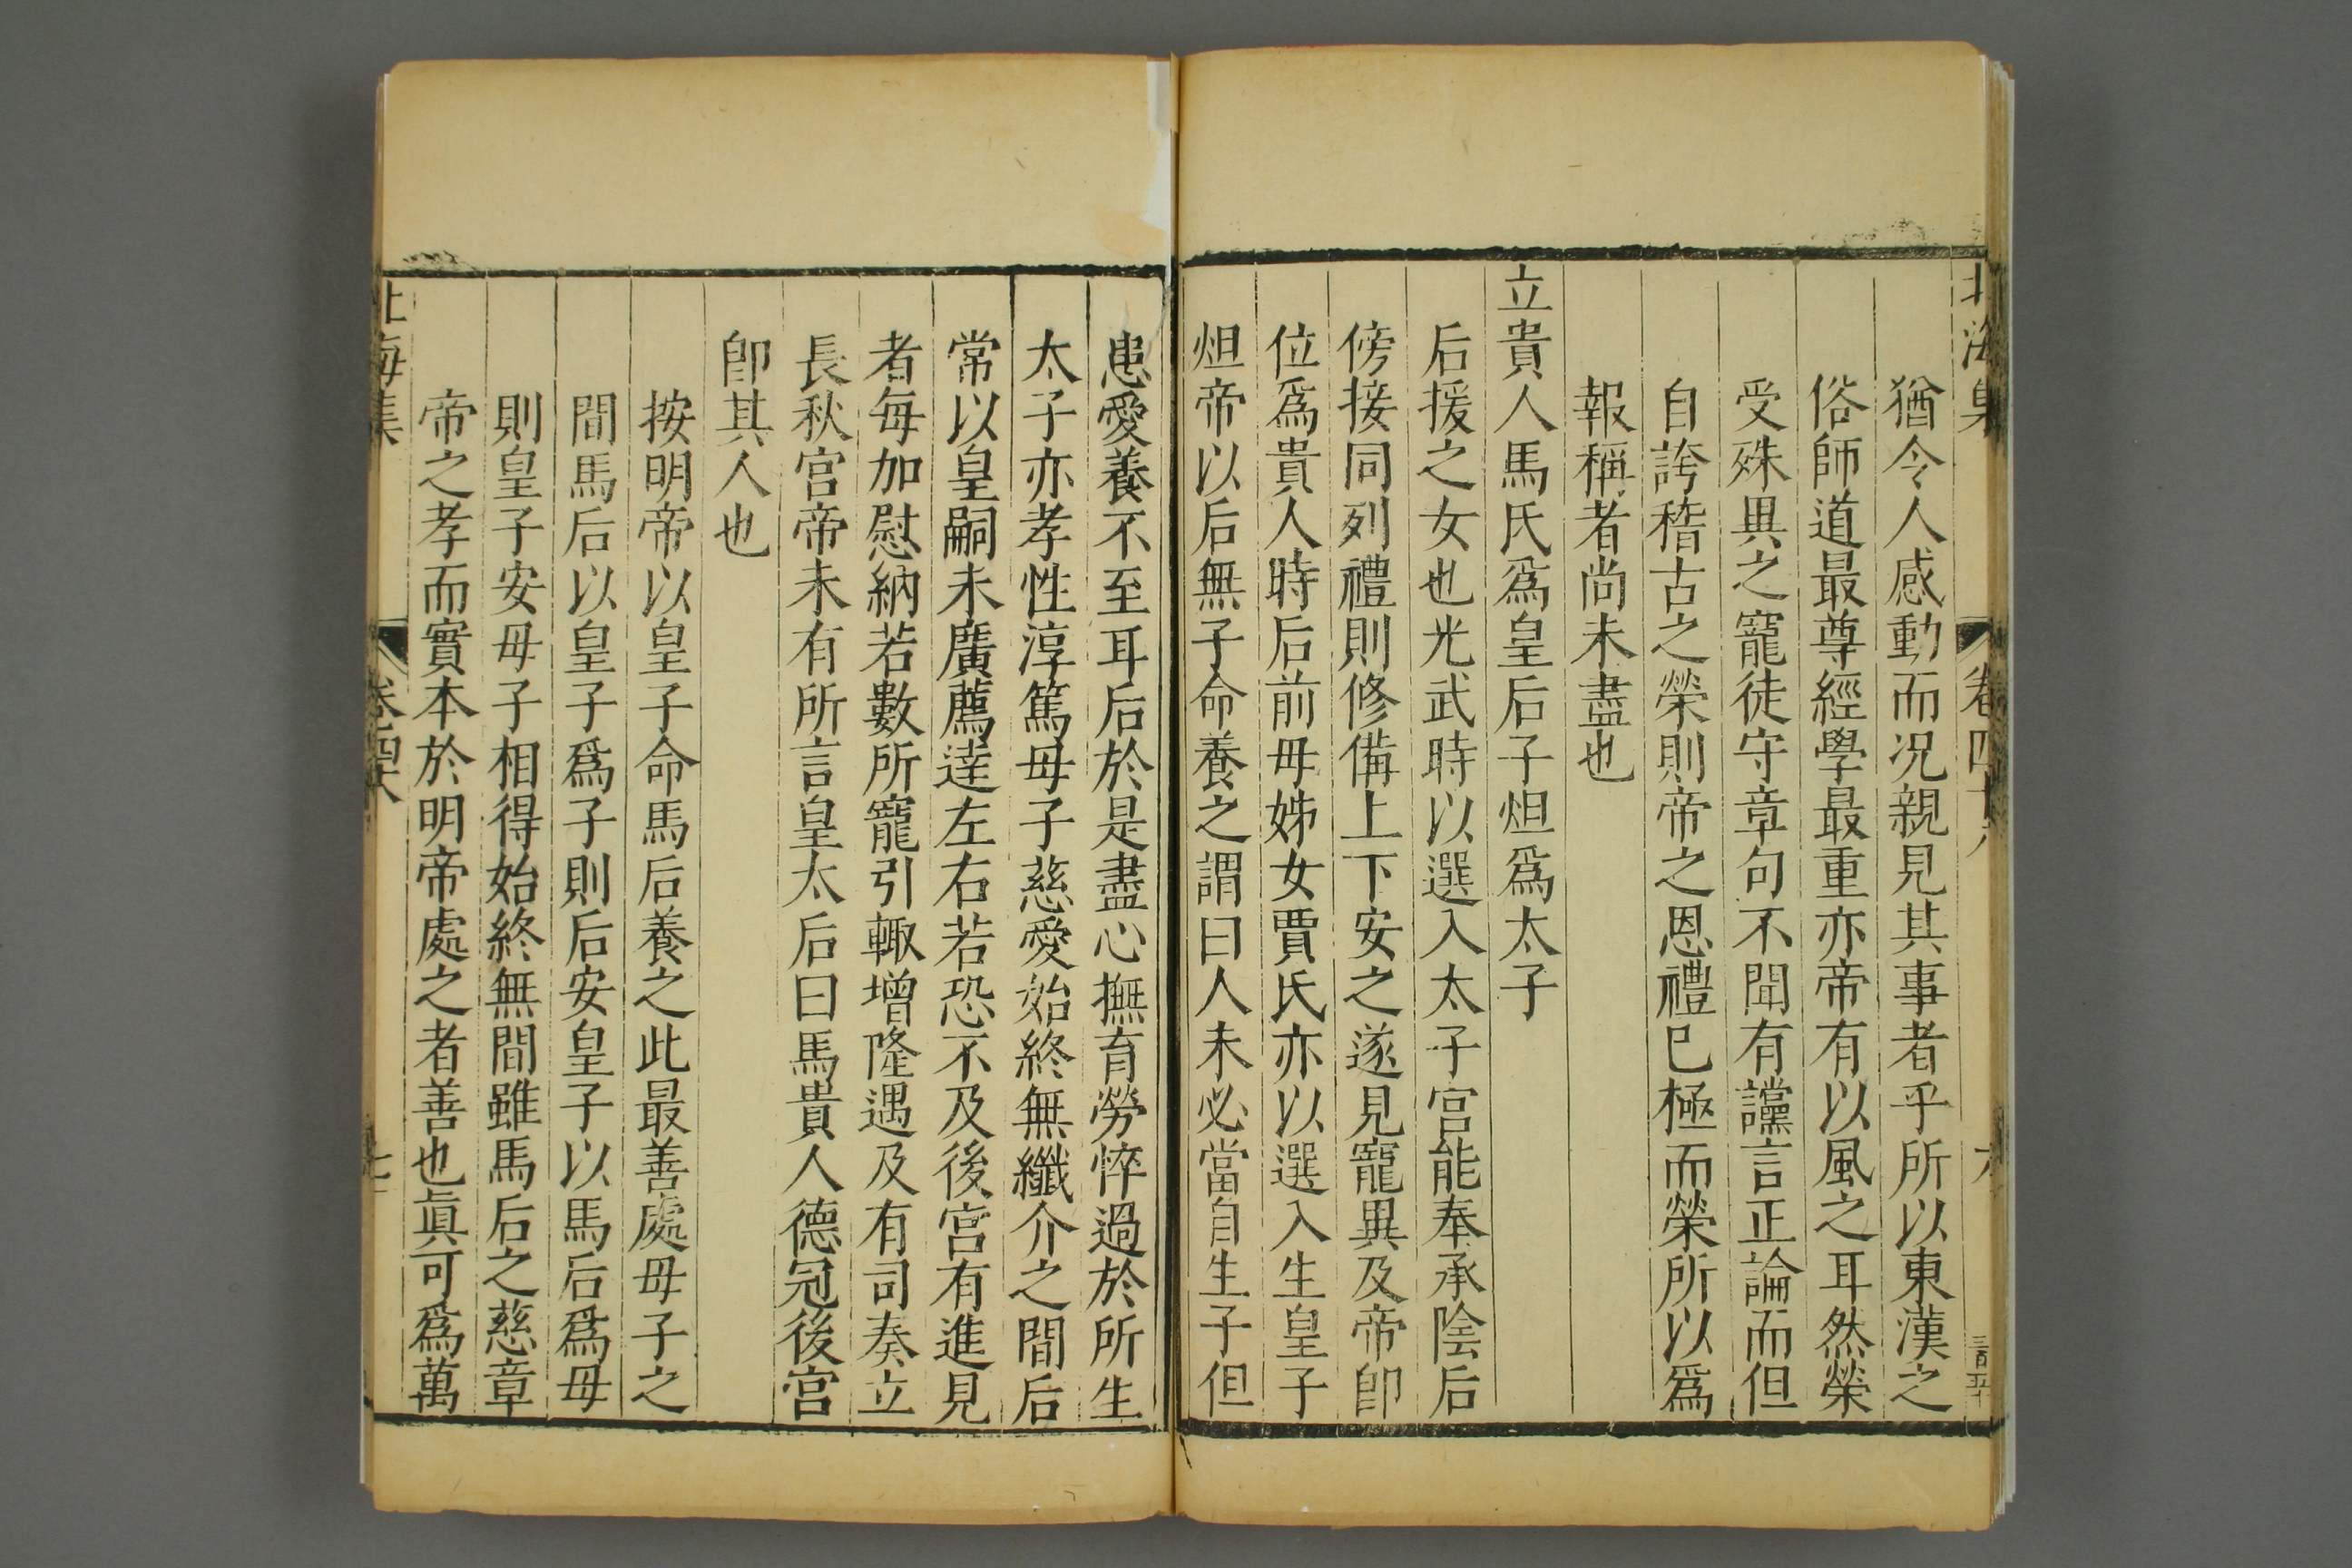 北海集
卷四十六
六
猶令人感動而況親見其事者乎所以東漢之
俗師道最尊經學最重亦帝有以風之耳然榮
受殊異之寵徒守章句不聞有讜言正論而但
自誇稽古之榮則帝之恩禮已極而榮所以爲
報稱者尚未盡也
立貴人馬氏爲皇后子炟爲太子
后援之女也光武時以選入太子宮能奉承陰后
傍接同列禮則修備上下安之遂見寵異及帝卽
位爲貴人時后前母姊女賈氏亦以選入生皇子
炟帝以后無子命養之謂曰人未必當自生子但
患愛養不至耳后於是盡心撫育勞悴過於所生
太子亦孝性淳篤母子慈愛始終無纖介之間后
常以皇嗣未廣薦達左右若恐不及後宮有進見
者每加慰納若數所寵引輙增隆遇及有司奏立
長秋宮帝未有所言皇太后曰馬貴人德冠後宮
卽其人也
按明帝以皇子命馬后養之此最善處母子之
間馬后以皇子爲子則后安皇子以馬后爲母
則皇子安母子相得始終無間雖馬后之慈章
帝之孝而實本於明帝處之者善也眞可爲萬
北海集
卷四十六
七